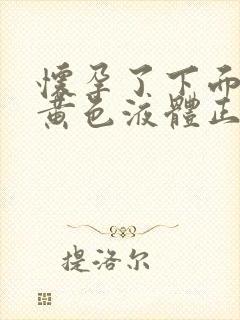 懷孕了下面
黃色液體正
提洛尔